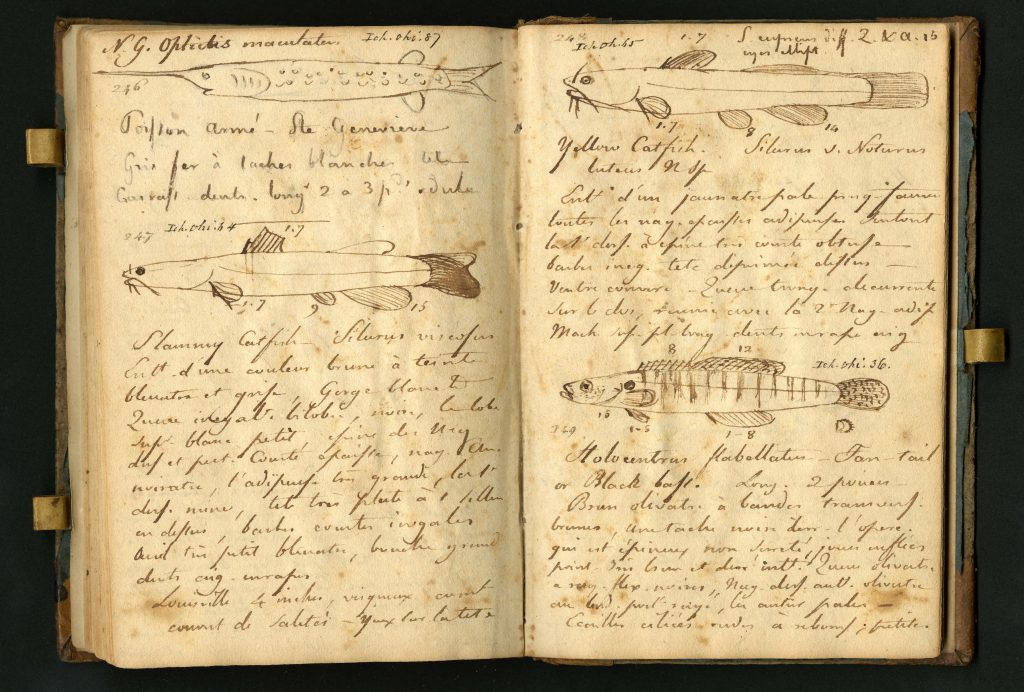 N. G. Opictis maculatus Ich. Ohi. 87
246
Poisson armé - Ste Genevieve
Gris fer à taches blanches tete
dents. longr 2 a 3 pds
247 Ich. Ohi. 64 1.7
1.7 9 15
Slammy Catfish Silurus viscosus
Entt d'une couleur brune à teinte
bleuatre et grise, Gorge blanche
Queue inegalt bilobée, noire, le lobe
supr blanc petit, epine des Nag
dors et pect. Courte epaisse, nag. An.
noiratre, l'adipeuse très grande, la 1e
dors. mine, tete très plate à 1 sillon
en dessus, barbes courtes inegales
Oeil très petit bleuatre, bouche grande
dents
Louisville 4 inches, visqueux corps
couvert de Saletés - Yeux sur la tete
248 Ich. Ohi. 65 1-7 S. diff. 2. & a. 15
eyes ellipt
1.7 8 14
Yellow Catfish. Silurus v. Noturus
luteus N Sp
Entt d'un jaunatre pale presq. fauve
toutes les nag. epaisses adipeuses surtout
la 1e dors. à epine très courte obtuse
barbes ineg. tete deprimée dessus -
Ventre convexe - Queue tronq. decurrente
sur le dos, reunie avec la 2e Nag. adip
Mach. sup. pl. long dents
8 12 Ich. Ohi. 36.
15
1-5 1-8
249
Holocentrus flabellatus - Fan-tail
or Black bass. Long. 2 pouces -
Brun olivatre à bandes transvers.
brunes une tache noire derr. l'operc.
qui est épineux non Serreté, joues
point. Iris brun et doré intt. Queue olivatre
a ray. flex. noires, Nag. dors. ant. olivatre
au bord, les autres pales -
Ecailles ciliées rudes à rebours; petites.